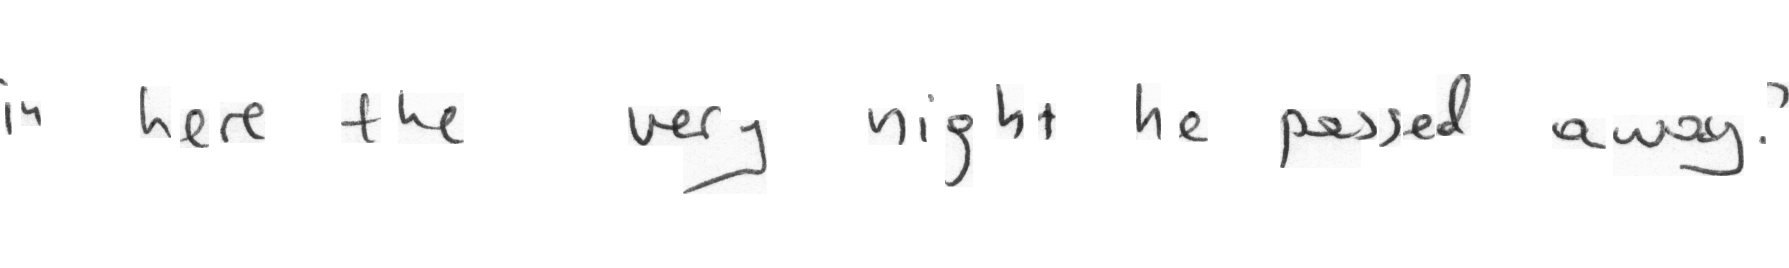 in here the very night he passed away?